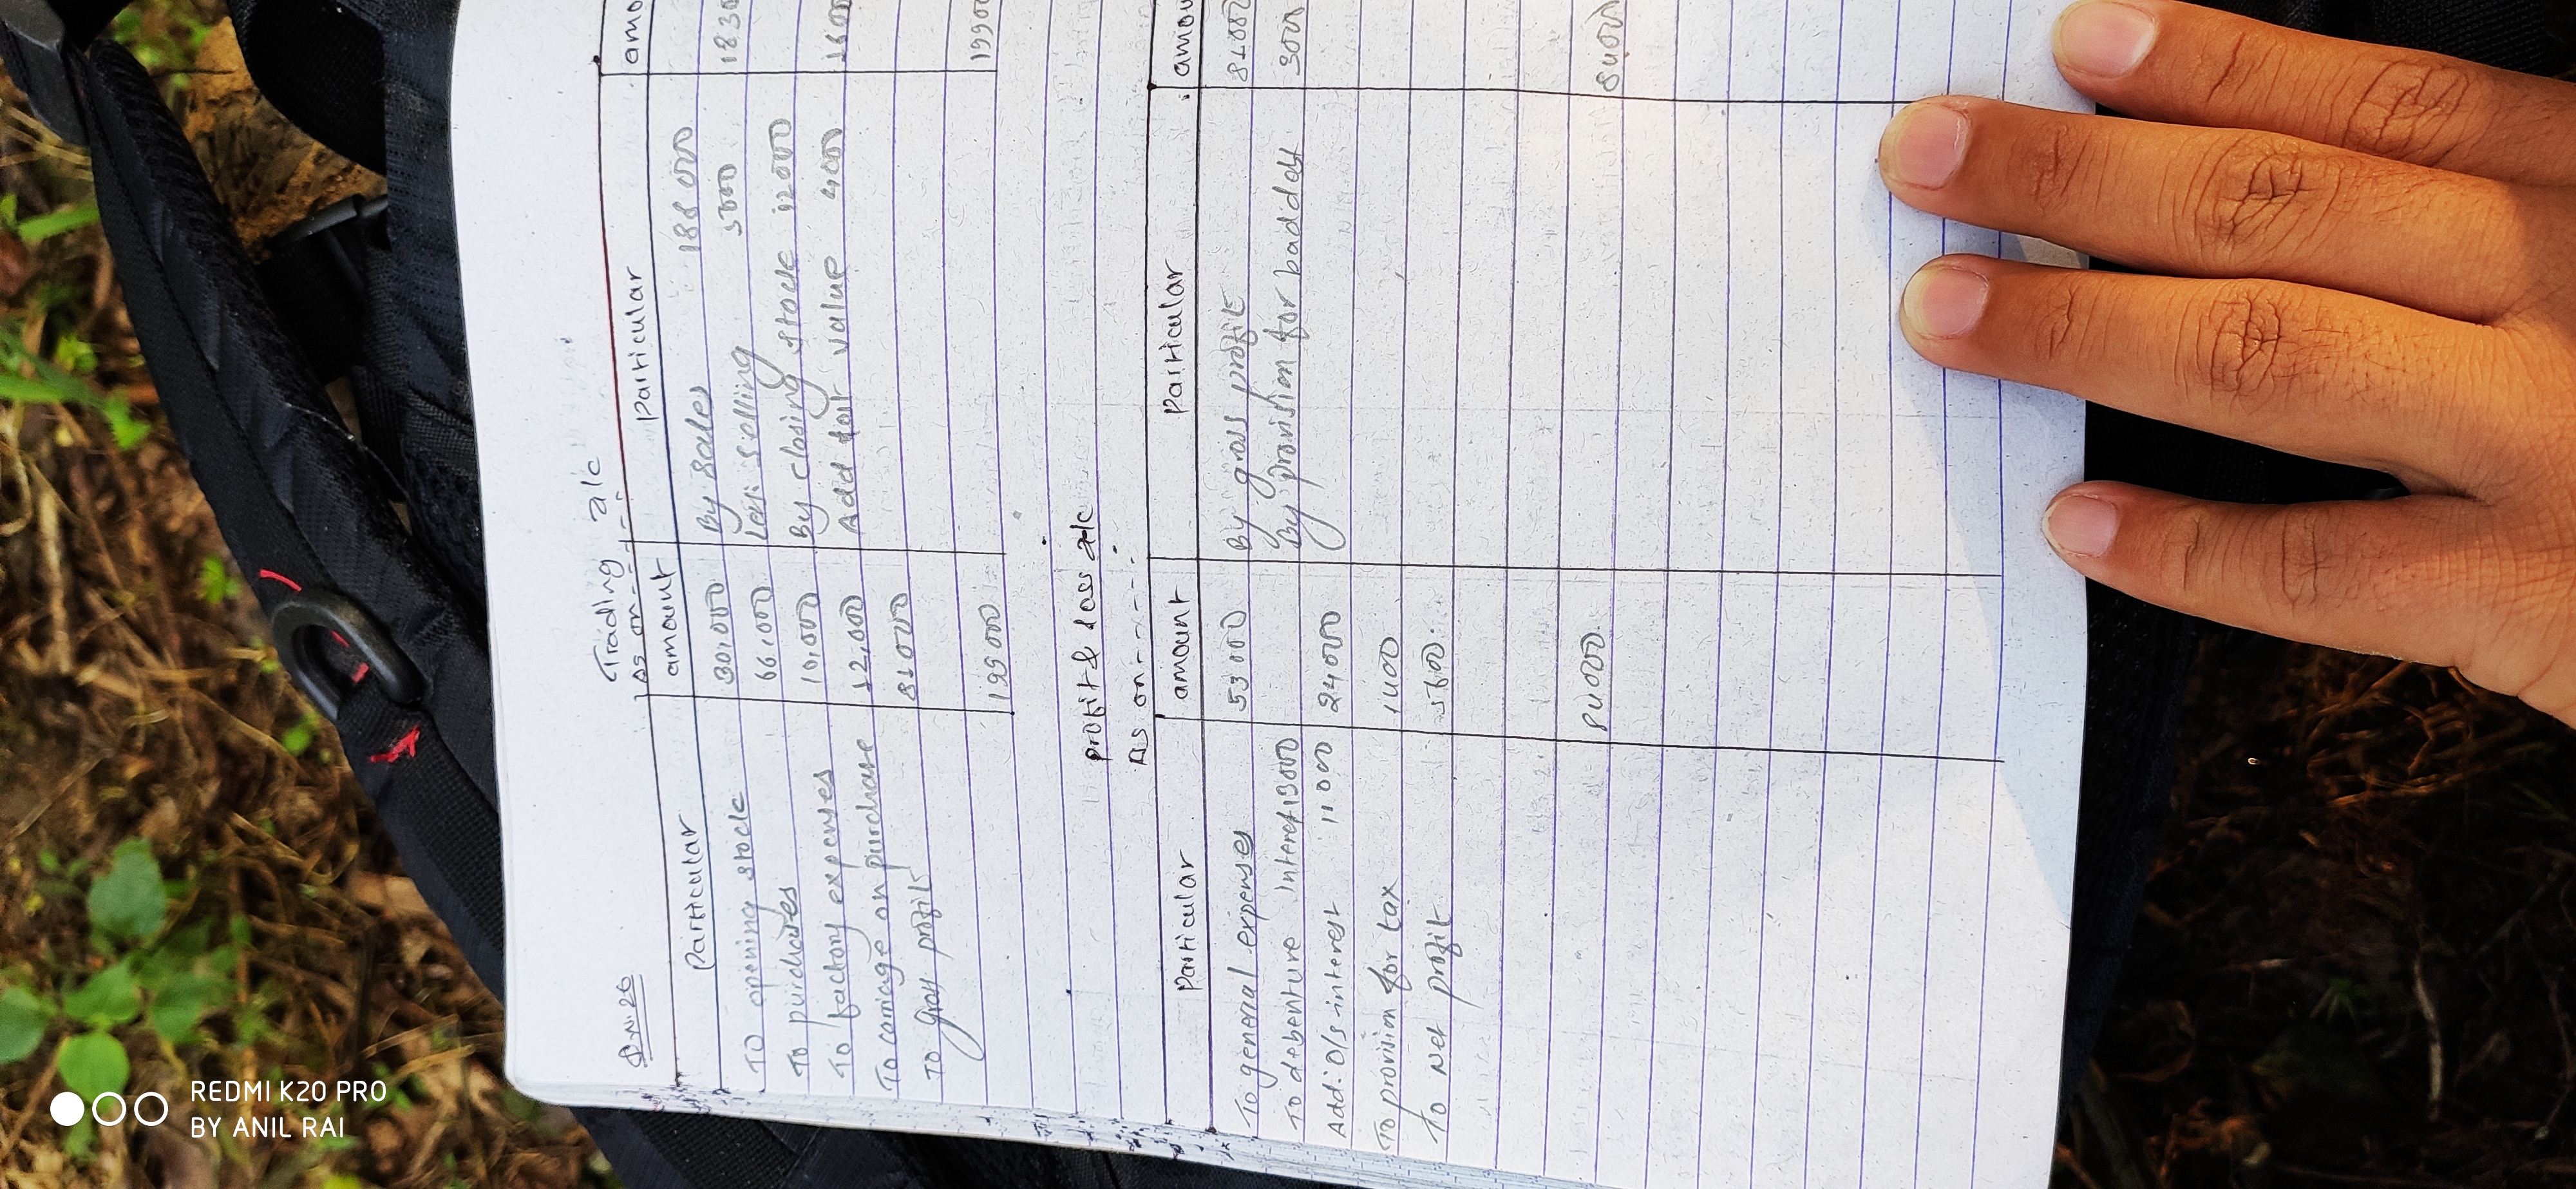 Q.N.26
Trading a/c
As on
Particular amount Particular amo
To opening stock 30,000 By sales 188000
To purchases 66,000 Less: selling 5000 1830
To factory expenses 10,000 By closing stock 12000
To carriage on purchase 12,000 Add value 4000 1600
To gross profit 81000
199000 19900
profit & loss a/c
As on
Particular amount Particular amou
To general expenses 53000 By gross profit 81000
To debenture Interest 13000 By provision for baddebt 3000
Add: O/s interest 11000 24000
To provision for tax 1400
To Net profit 5600
84000 84000
REDMI K20 PRO
BY ANIL RAI